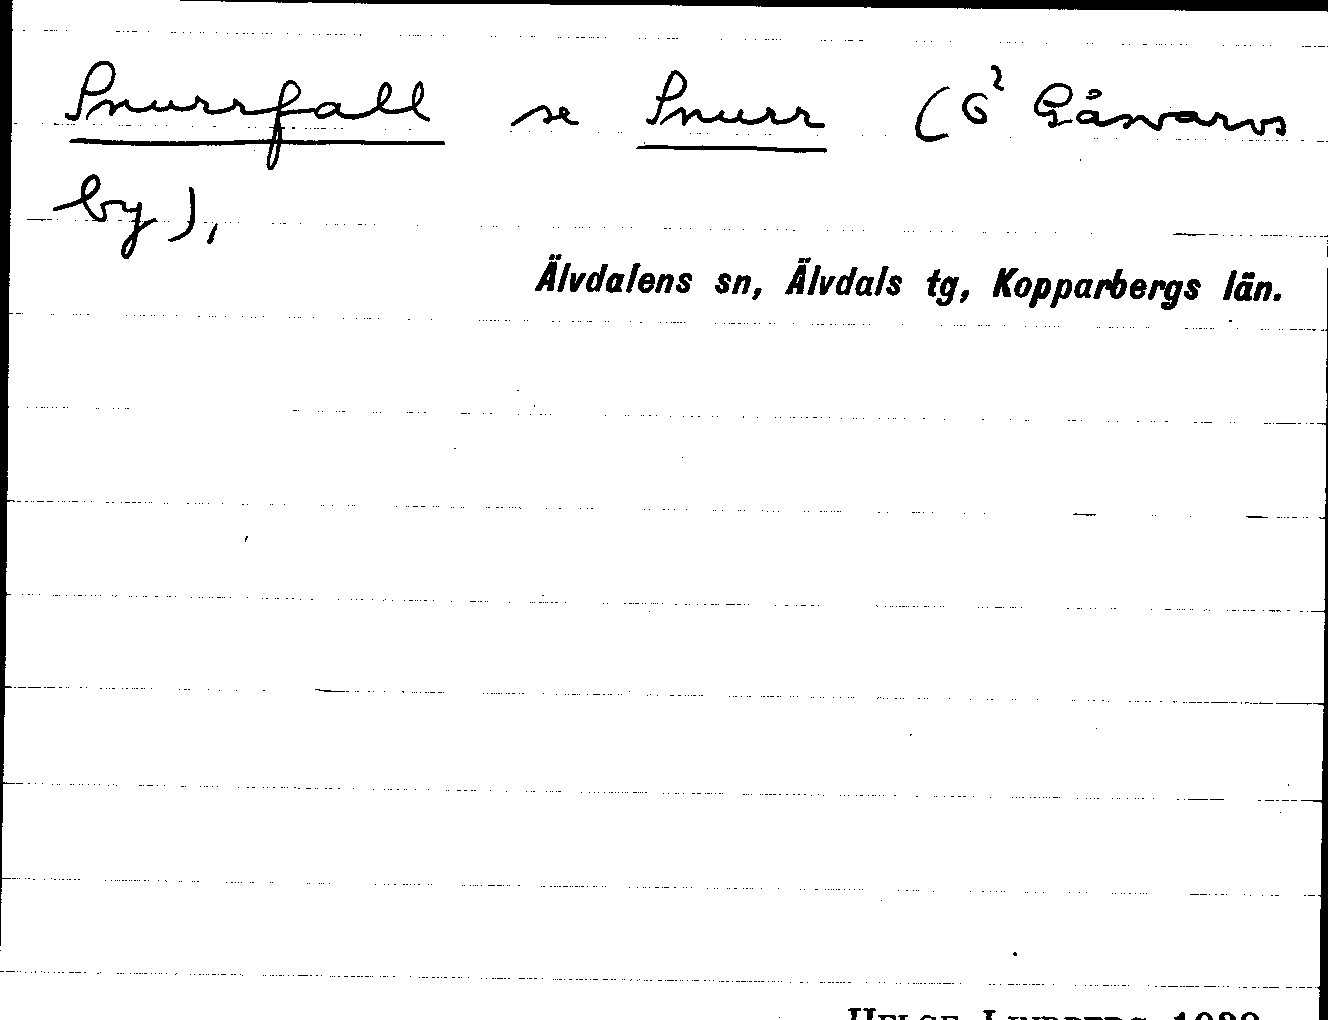 Snurrfall se Snurr (6² Gåsvarvs
by),
Älvdalens sn, Älvdals tg, Kopparbergs län.